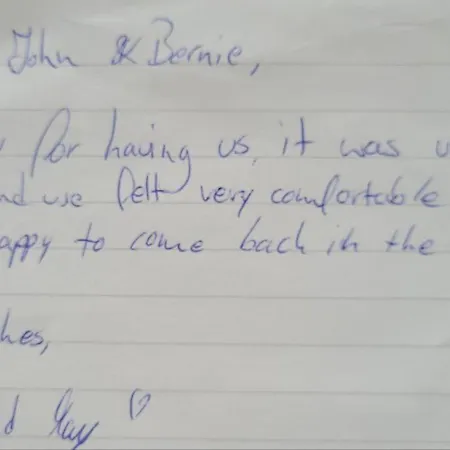 John & Bernie,
for having us, it was
and we felt very comfortable
appy to come back in the
hes,
d